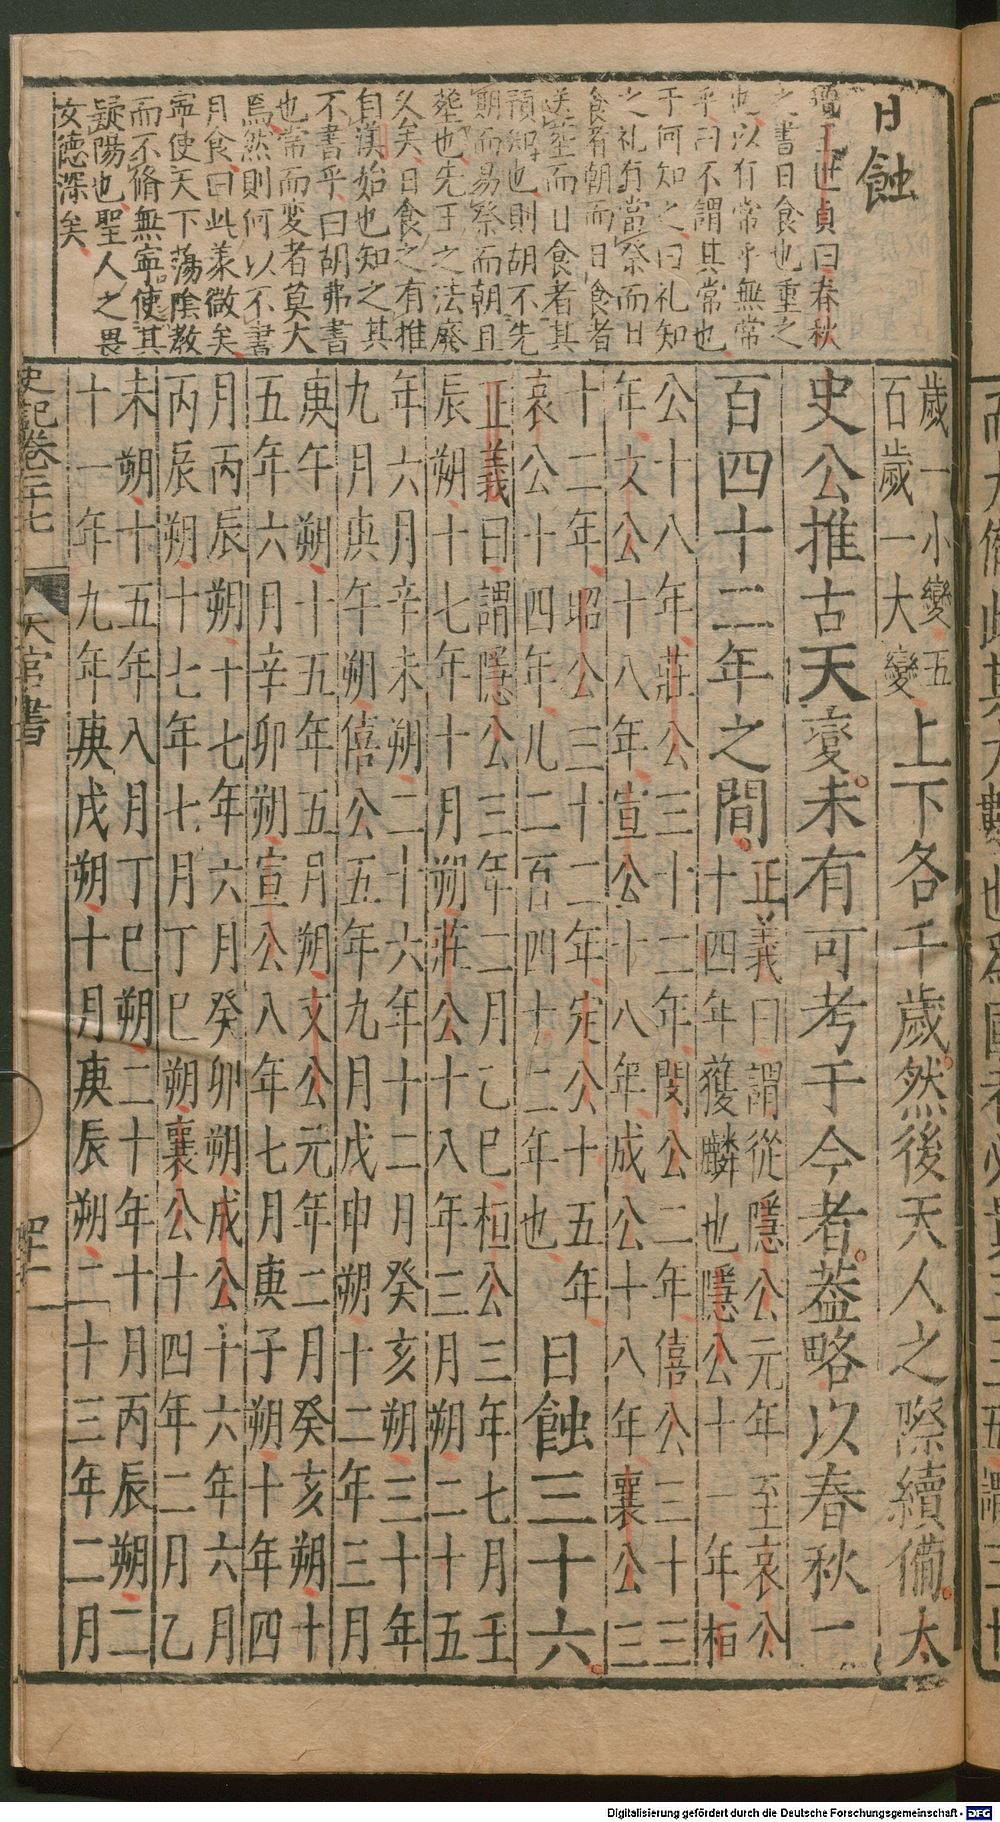 日蝕
王世貞曰春秋
之書日食也重之
也以有常乎無常
乎曰不謂其常也
于何知之曰礼知
之礼有當祭而日
食者朝而日食者
送塟而日食者其
預知也則胡不先
期而易祭而朝且
塟也先王之法廢
久矣日食之有推
自漢始也知之其
不書乎曰胡弗書
也常而変者莫大
焉然則何以不書
月食曰此羕微矣
寕使天下蕩陰教
而不脩無寧使其
疑陽也聖人之畏
文徳深矣
歲一小變五
百歲一大變上下各千歲然後天人之際續備太
史公推古天變未有可考于今者蓋略以春秋二
百四十二年之間正義曰謂從隱公元年至哀公
十四年獲麟也隱公十一年桓
公十八年莊公三十二年閔公二年僖公三十三
年文公十八年宣公十八年成公十八年襄公三
十二年昭公三十二年定公十五年
哀公十四年凡二百四十二年也日蝕三十六
正義曰謂隱公三年二月乙巳桓公三年七月壬
辰朔十七年十月朔莊公十八年三月朔二十五
年六月辛未朔二十六年十二月癸亥朔三十年
九月庚午朔僖公五年九月戊申朔十二年三月
庚午朔十五年五月朔文公元年二月癸亥朔十
五年六月辛卯朔宣公八年七月庚子朔十年四
月丙辰朔十七年六月癸卯朔成公十六年六月
丙辰朔十七年七月丁巳朔襄公十四年二月乙
未朔十五年八月丁巳朔二十年十月丙辰朔二
十一年九年庚戌朔十月庚辰朔二十三年二月
史記卷二十七 天官書
Digitalisierung gefördert durch die Deutsche Forschungsgemeinschaft - DFG